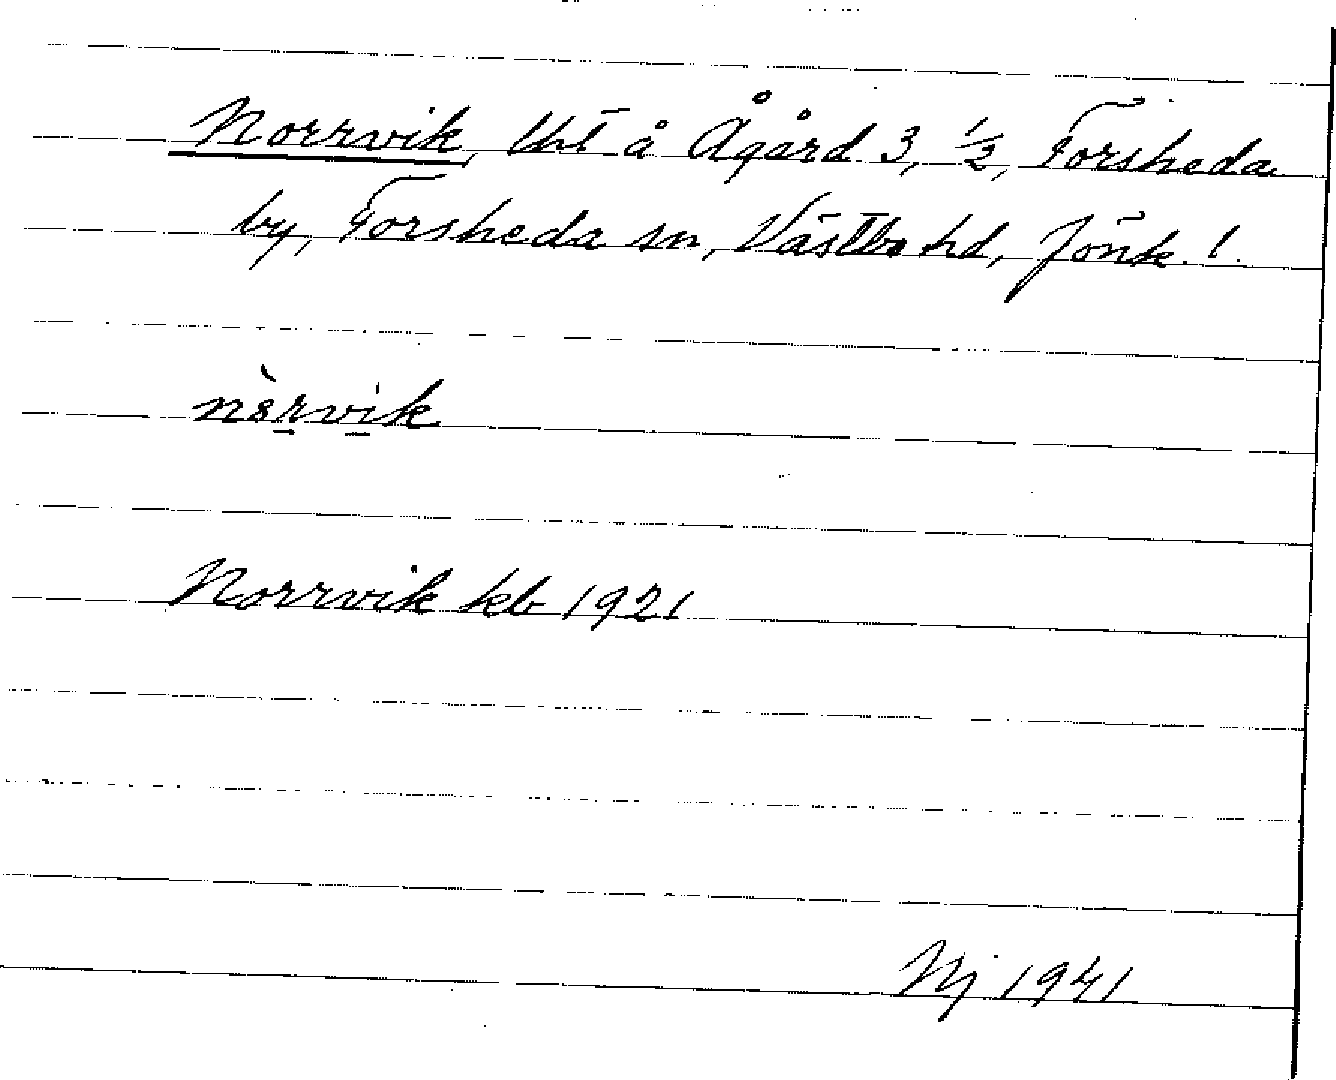 Norrvik, lht å Ågård 3, 1/2, Forsheda
by, Forsheda sn, Västbo hd, Jönk. l.
nèrvik
Norrvik kb 1921
Nj 1941